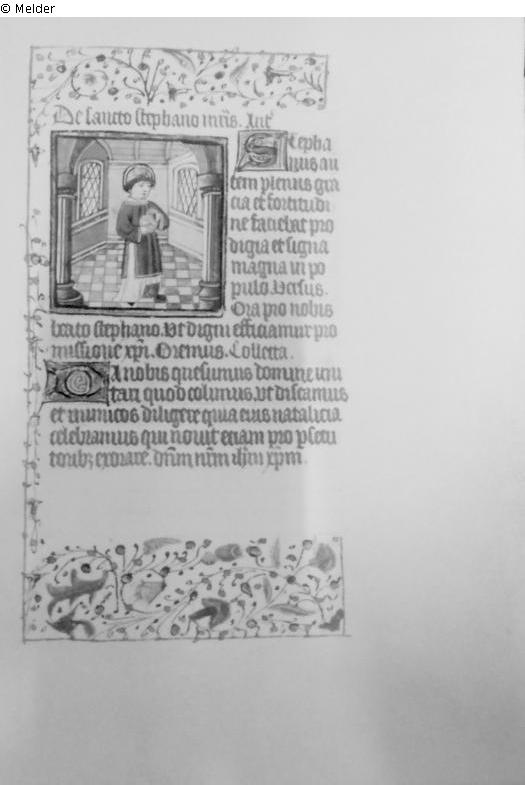 © Melder
De sancto stephano mris. Ant'
Stepha
nus au
tem plenus gra
cia et fortitudi
ne faciebat pro
digia et signa
magna in po
pulo. Versus.
Ora pro nobis
beate stephano. Ut digni efficiamur pro
missione xpi. Oremus. Collecta.
Da nobis quesumus domine imi
tari quod colimus. Ut discamus
et inimicos diligere quia eius natalicia
celebramus qui novit etiam pro psecu
toribz exorare. dnm nrm ihm xpm.